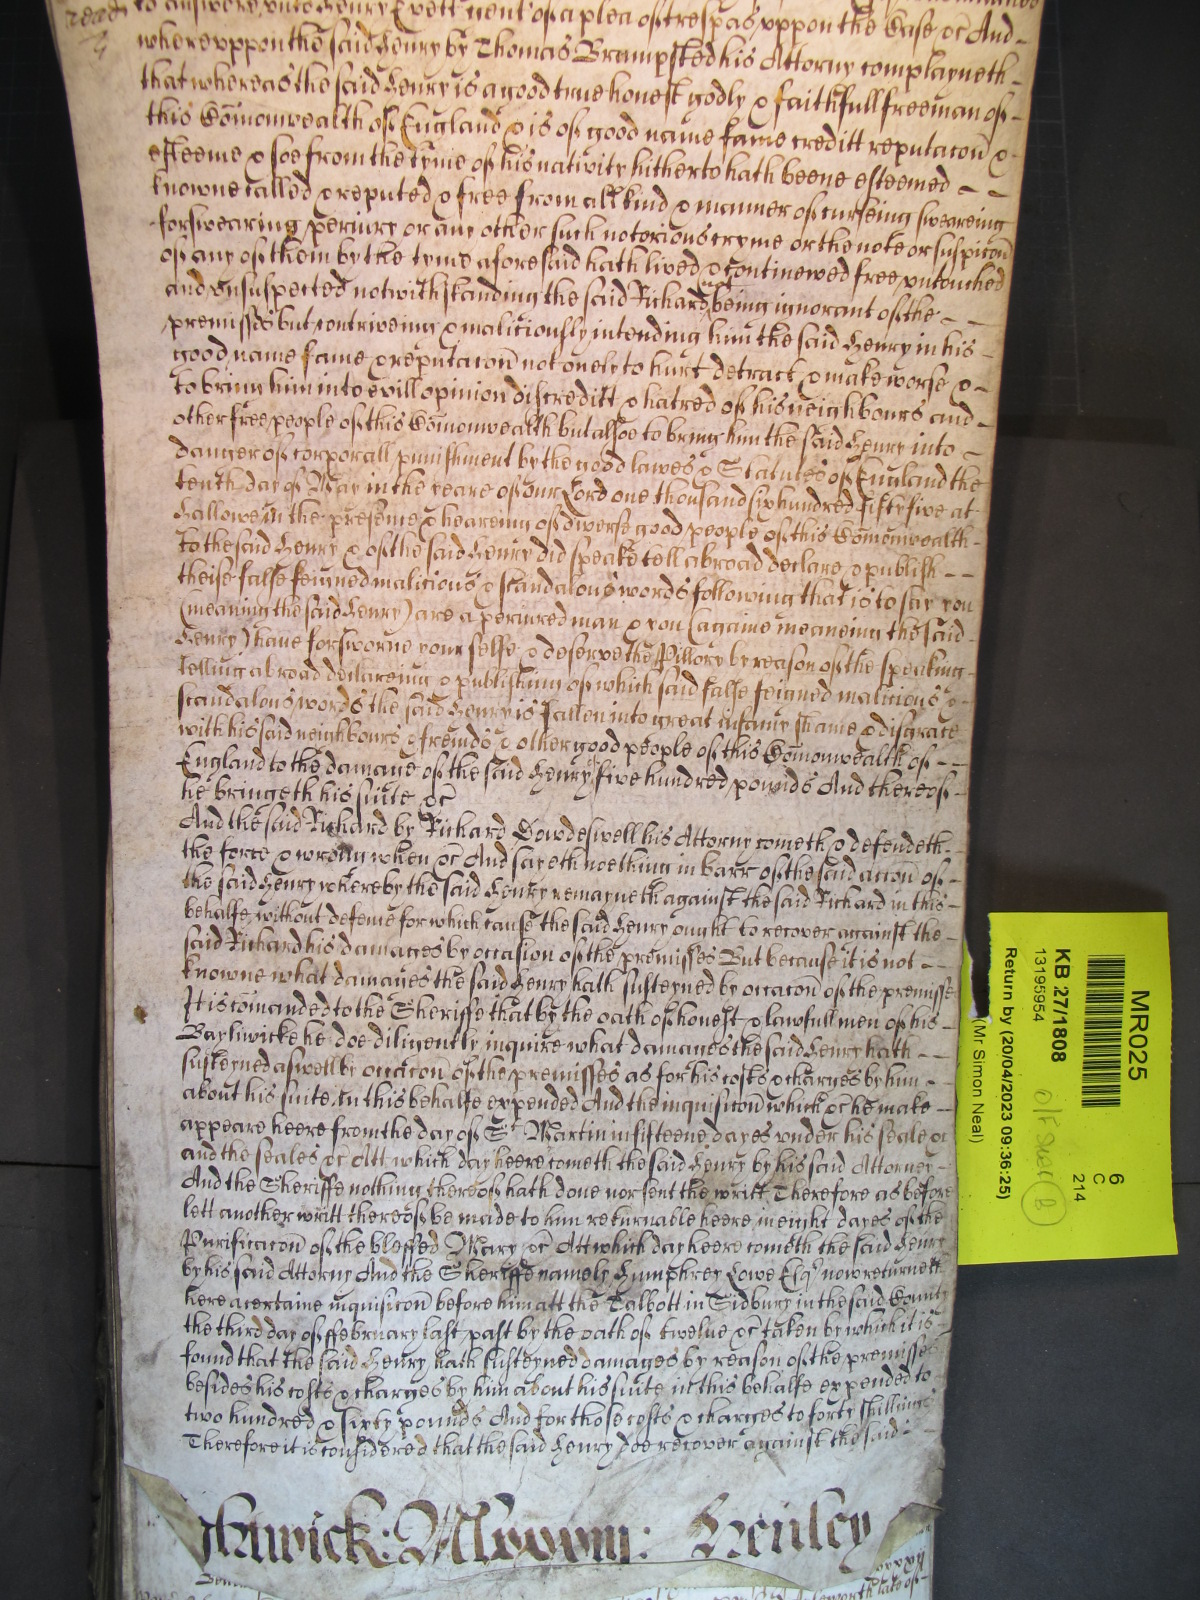 to answere unto Henry Evett gent of a plea of trespas uppon the Case &c And
whereuppon the said Henry by Thomas Brampsted his Attorny complayneth
that whereas the said Henry is a good true honest godly & faithfull freeman of
this Com̄onwealth of England & is of good name fame creditt reputac̄on &
esteeme & soe from the tyme of his nativity hitherto hath beene esteemed
knowne called & reputed & free from all kind & manner of curseing sweareing
forswearing periury or any other such notorious cryme or the note or suspic̄on
of any of them by the tyme aforesaid hath lived & continewed free untouched
and unsuspected notwithstanding the said Richard not being ignorant of the
premisses but contriveing & maliciously intending him the said Henry in his
good name fame & reputac̄on not onely to hurt detract & make worse &
to bring him into evill opinion discreditt & hatred of his neighbours and
other free people of this Com̄onwealth but alsoe to bring him the said Henry into
danger of corporall punishment by the good lawes & Statutes of England the
tenth day of May in the yeare of our Lord one thousand six hundred fifty five at
Hallowe in the presence & heareing of diverse good people of this Com̄onwealth
to the said Henry & of the said Henry did speake tell abroad declare & publish
theise false feigned malicious & scandalous words following that is to say you
(meaning the said Henry) are a periured man & you (againe meaneing the said
Henry) have forsworne your selfe & deserve the Pillory by reason of the speaking
telling abroad declareing & publishing of which said false feigned malicious &
scandalous words the said Henry is fallen into great infamy shame & disgrace
with his said neighbours & freinds & other good people of this Com̄onwealth of
England to the damage of the said Henry five hundred pounds And thereof
he bringeth his suite &c
And the said Richard by Richard Dowdeswell his Attorny cometh & defendeth
the force & wrong when &c And sayeth noething in barr of the said acc̄on of
the said Henry whereby the said Henry remayneth against the said Richard in this
behalfe without defence for which cause the said Henry ought to recover against the
said Richard his damages by occasion of the premisses But because it is not
knowne what damages the said Henry hath susteyned by occac̄on of the premisses
It is com̄anded to the Sheriffe that by the oath of honest & lawfull men of his
Bayliwicke he doe diligently inquire what damages the said Henry hath
susteyned aswell by occac̄on of the premisses as for his costs & charges by him
about his suite in this behalfe expended And the inquisic̄on which &c he make
appeare heere from the day of St Martin in fifteene dayes under his seale &c
and the seales &c Att which day heere cometh the said Henry by his said Attorney
And the Sheriffe nothing thereof hath done nor sent the writt Therefore as before
lett another writt thereof be made to him returnable heere in eight dayes of the
Purificac̄on of the blessed Mary &c Att which day heere cometh the said Henry
by his said Attorny And the Sheriffe namely Humphrey Lowe Esqr now returneth
here a certaine inquisic̄on before him att the Talbott in Sidbury in the said County
the third day of ffebruary last past by the oath of twelve &c taken by which it is
found that the said Henry hath susteyned damages by reason of the premisses
besides his costs & charges by him about his suite in this behalfe expended to
two hundred & sixty pounds And for those costs & charges to forty shillings
Therefore it is considered that the said Henry doe recover against the said
Henley
MR025
6
C
214
KB 27/1808
13195954
Return by (20/04/2023 09:36:25)
(Mr Simon Neal)